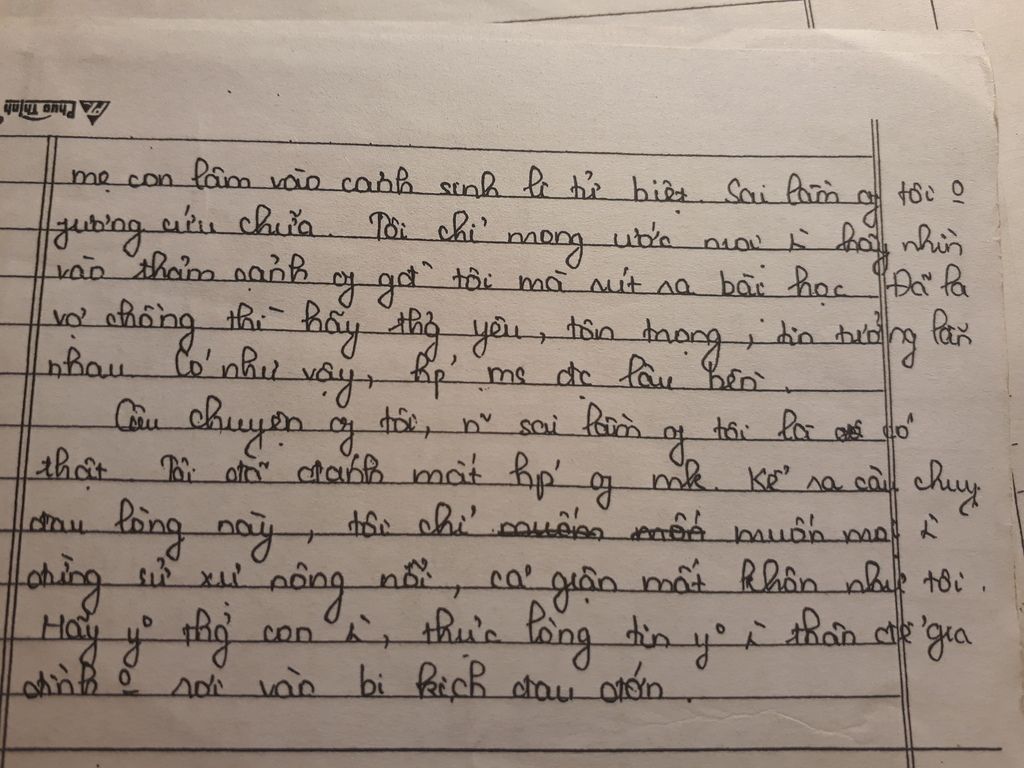 Phúc Thịnh
mẹ con lâm vào cảnh sinh li tử biệt. Sai lầm of tôi o
gượng cứu chữa. Tôi chỉ mong ước mọi ì hãy nhìn
vào thảm cảnh of gđ tôi mà rút ra bài học. Đã là
vợ chồng thì hãy thg yêu, tôn trọng, tin tưởng lẫn
nhau. Có như vậy, hp' ms đc lâu bền.
Câu chuyện of tôi, n~ sai lầm of tôi là có
thật. Tôi đã đánh mất hp' of mk. Kể ra câu chuyện
đau lòng này, tôi chỉ muốn mọi ì
đừng sử xự nông nổi, cả giận mất khôn như tôi.
Hãy yo thg con ì, thực lòng tin yo ì thân để gia
đình o rơi vào bi kịch đau đớn.